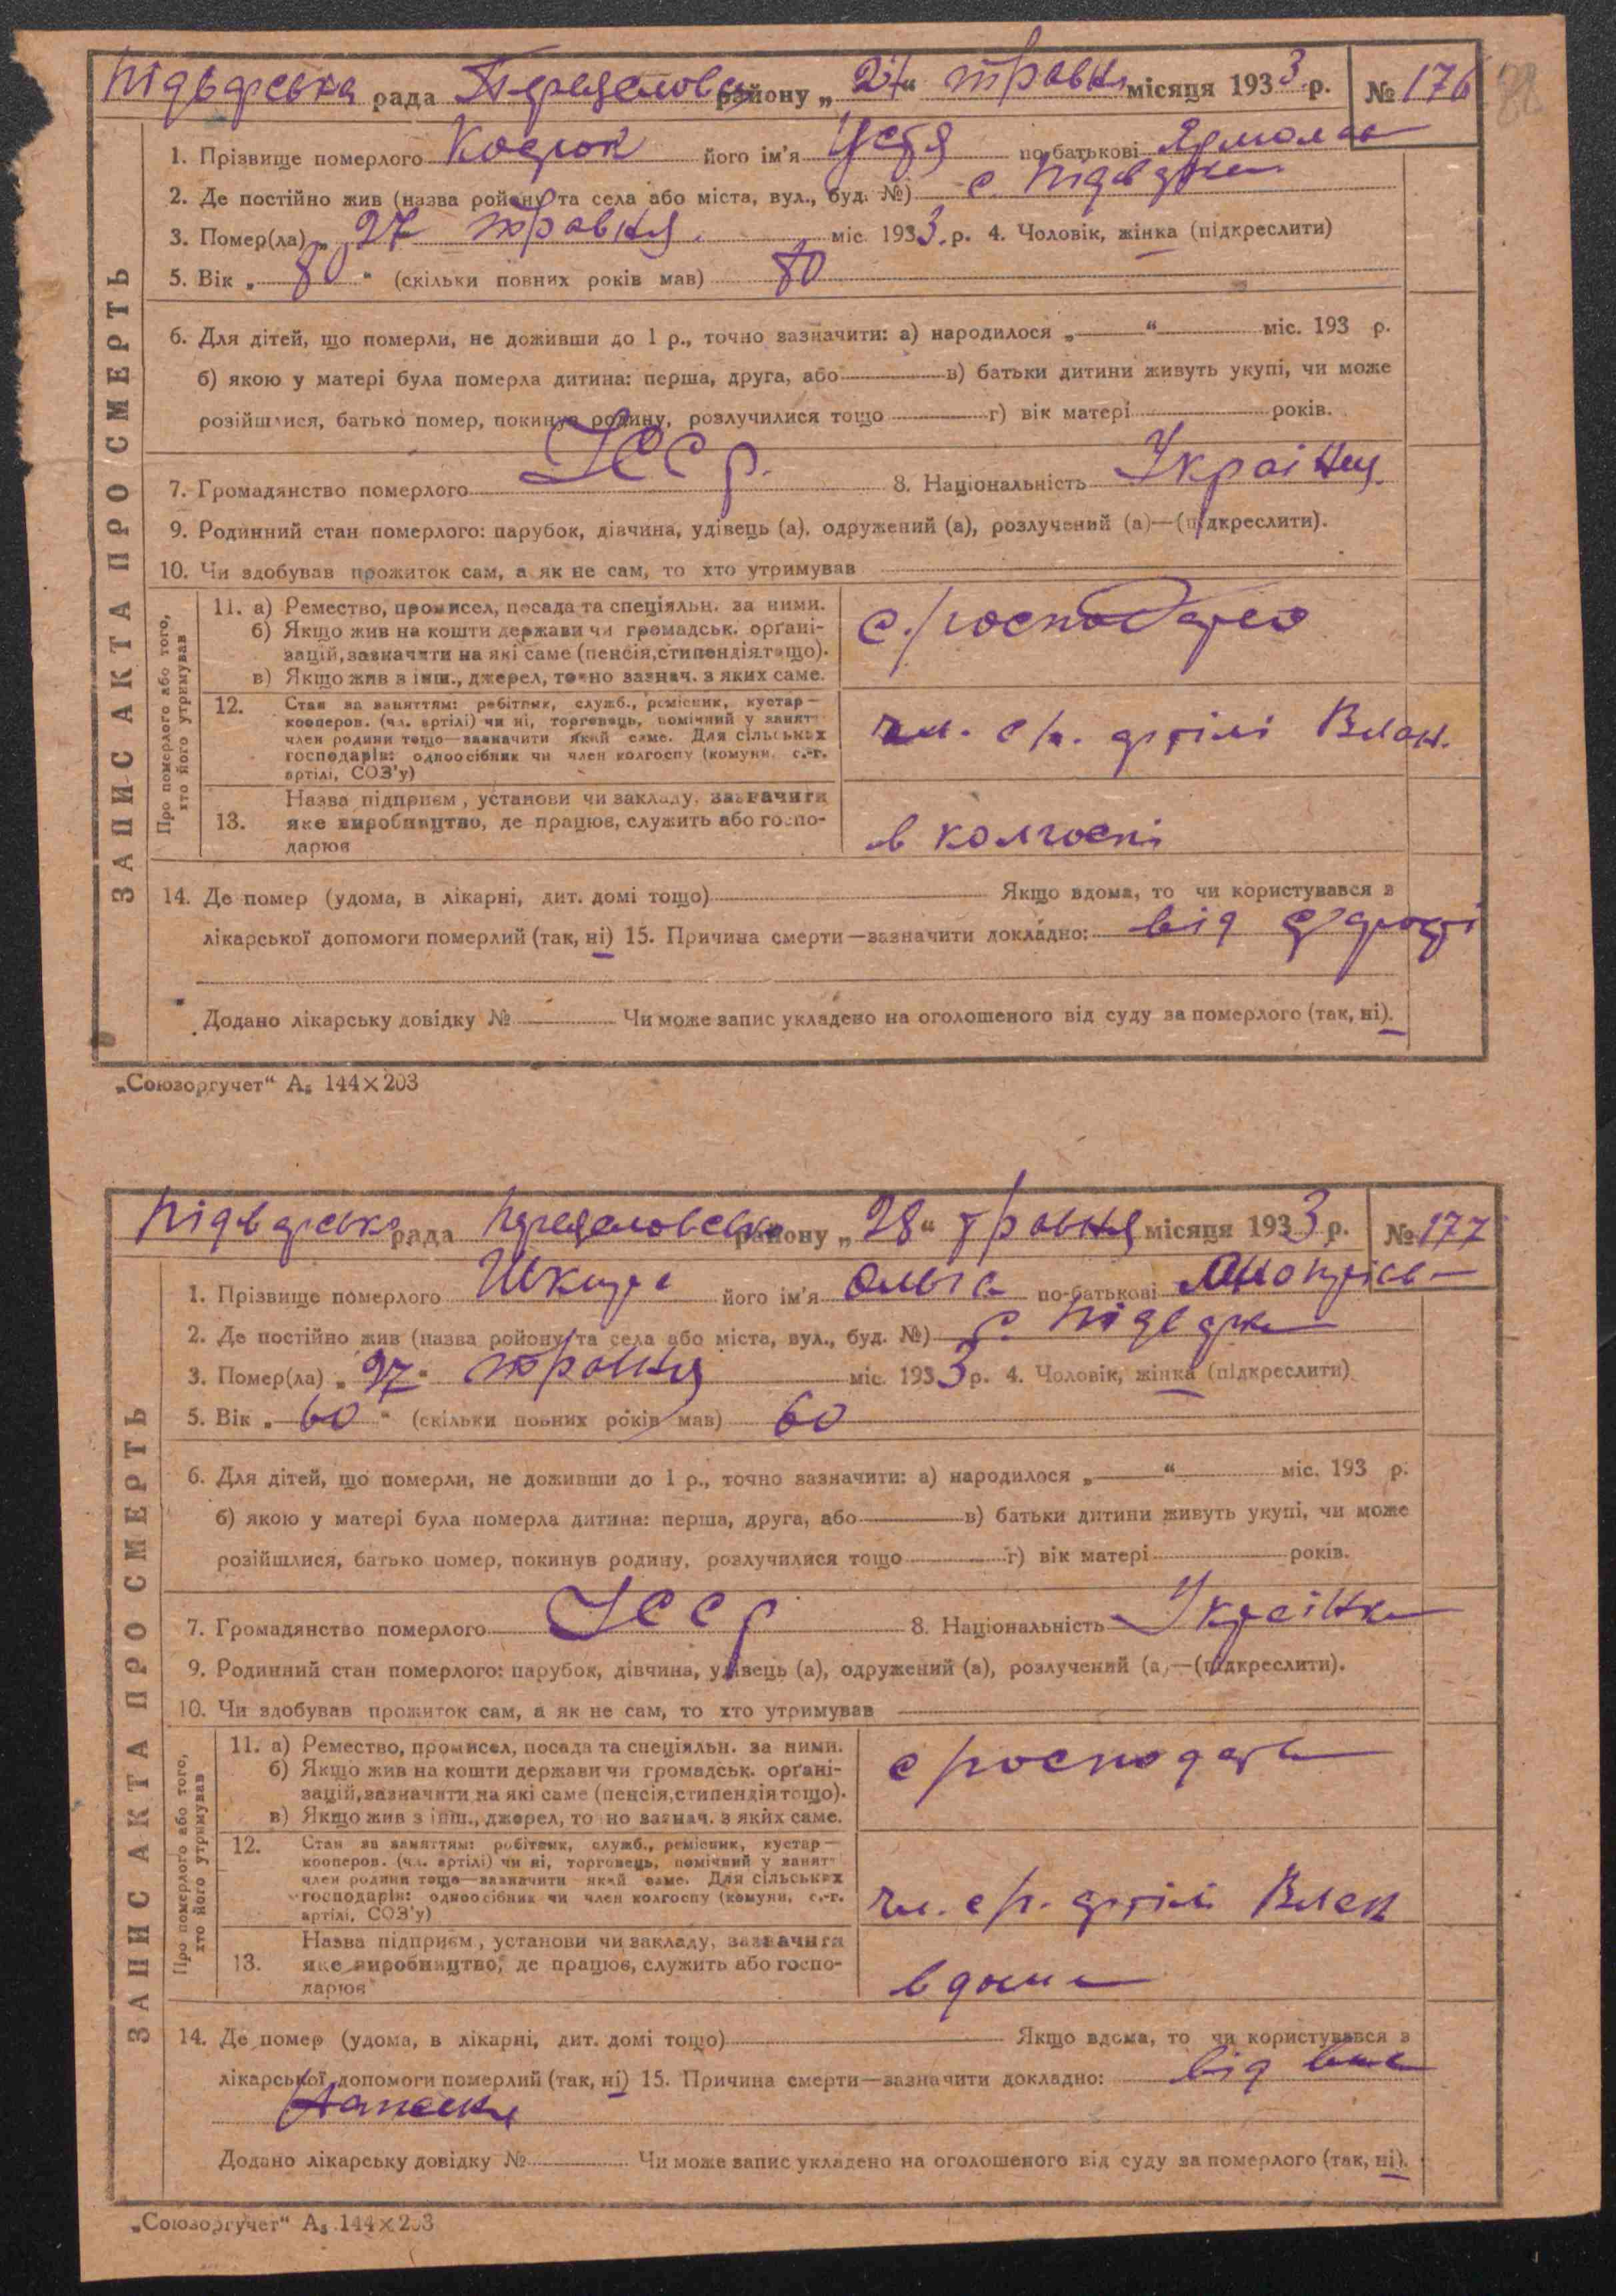 Підварська рада Переяславськ району „27“ травня місяця 1933 р. № 176
1. Прізвище померлого його ім'я Устя по-батькові
2. Де постійно жив (назва ройону та села або міста, вул., буд. №) с. Підварки
3. Помер(ла) „ 27 травня міс. 1933 р. 4. Чоловік, жінка (підкреслити)
5. Вік „ 80 “ (скільки повних років мав) 80
6. Для дітей, що померли, не доживши до 1 р., точно зазначити: а) народилося „ “ міс. 193 р.
б) якою у матері була померла дитина: перша, друга, або в) батьки дитини живуть укупі, чи може
розійшлися, батько помер, покинув родину, розлучилися тощо г) вік матері років.
7. Громадянство померлого УССР. 8. Національність
9. Родинний стан померлого: парубок, дівчина, удівець (а), одружений (а), розлучений (а)—(підкреслити).
10. Чи здобував прожиток сам, а як не сам, то хто утримував
ЗАПИС АКТА ПРО СМЕРТЬ
Про померлого або того, хто його утримував
11. а) Ремество, промисел, посада та спеціяльн. за ними.
б) Якщо жив на кошти держави чи громадськ. органі-
зацій, зазначити на які саме (пенсія, стипендія тощо).
в) Якщо жив з інш., джерел, точно зазнач. з яких саме.
12. Стан за заняттям: робітник, служб., ремісник, кустар—
кооперов. (чл. артілі) чи ні, торговець, помічний у занят-
член родини тощо—зазначити який саме. Для сільських
господарів: одноосібник чи член колгоспу (комуни, с.-г.
артілі, СОЗ'у)
чл. с/г. артілі
Назва підприєм, установи чи закладу, зазначити
13. яке виробництво, де працює, служить або госпо-
дарює
в колгоспі
14. Де помер (удома, в лікарні, дит. домі тощо) Якщо вдома, то чи користувався з
лікарської допомоги померлий (так, ні) 15. Причина смерти—зазначити докладно: від старості
Додано лікарську довідку № Чи може запис укладено на оголошеного від суду за померлого (так, ні).
„Союзоргучет“ А₅ 144×203
Підварська рада Переяславськ району „28“ травня місяця 1933 р. № 177
1. Прізвище померлого його ім'я Ольга по-батькові
2. Де постійно жив (назва ройону та села або міста, вул., буд. №) с. Підварки
3. Помер(ла) „ 27 “ травня міс. 1933 р. 4. Чоловік, жінка (підкреслити)
5. Вік „ 60 “ (скільки повних років мав) 60
6. Для дітей, що померли, не доживши до 1 р., точно зазначити: а) народилося „ “ міс. 193 р.
б) якою у матері була померла дитина: перша, друга, або в) батьки дитини живуть укупі, чи може
розійшлися, батько помер, покинув родину, розлучилися тощо г) вік матері років.
7. Громадянство померлого УССР 8. Національність Українка
9. Родинний стан померлого: парубок, дівчина, удівець (а), одружений (а), розлучений (а)—(підкреслити).
10. Чи здобував прожиток сам, а як не сам, то хто утримував
ЗАПИС АКТА ПРО СМЕРТЬ
Про померлого або того, хто його утримував
11. а) Ремество, промисел, посада та спеціяльн. за ними.
б) Якщо жив на кошти держави чи громадськ. органі-
зацій, зазначити на які саме (пенсія, стипендія тощо).
в) Якщо жив з інш., джерел, точно зазнач. з яких саме.
12. Стан за заняттям: робітник, служб., ремісник, кустар—
кооперов. (чл. артілі) чи ні, торговець, помічний у занят-
член родини тощо—зазначити який саме. Для сільських
господарів: одноосібник чи член колгоспу (комуни, с.-г.
артілі, СОЗ'у)
чл. с/г. артілі
Назва підприєм, установи чи закладу, зазначити
13. яке виробництво, де працює, служить або госпо-
дарює
вдома
14. Де помер (удома, в лікарні, дит. домі тощо) Якщо вдома, то чи користувався з
лікарської допомоги померлий (так, ні) 15. Причина смерти—зазначити докладно: від
Додано лікарську довідку № Чи може запис укладено на оголошеного від суду за померлого (так, ні).
„Союзоргучет“ А₅ 144×203